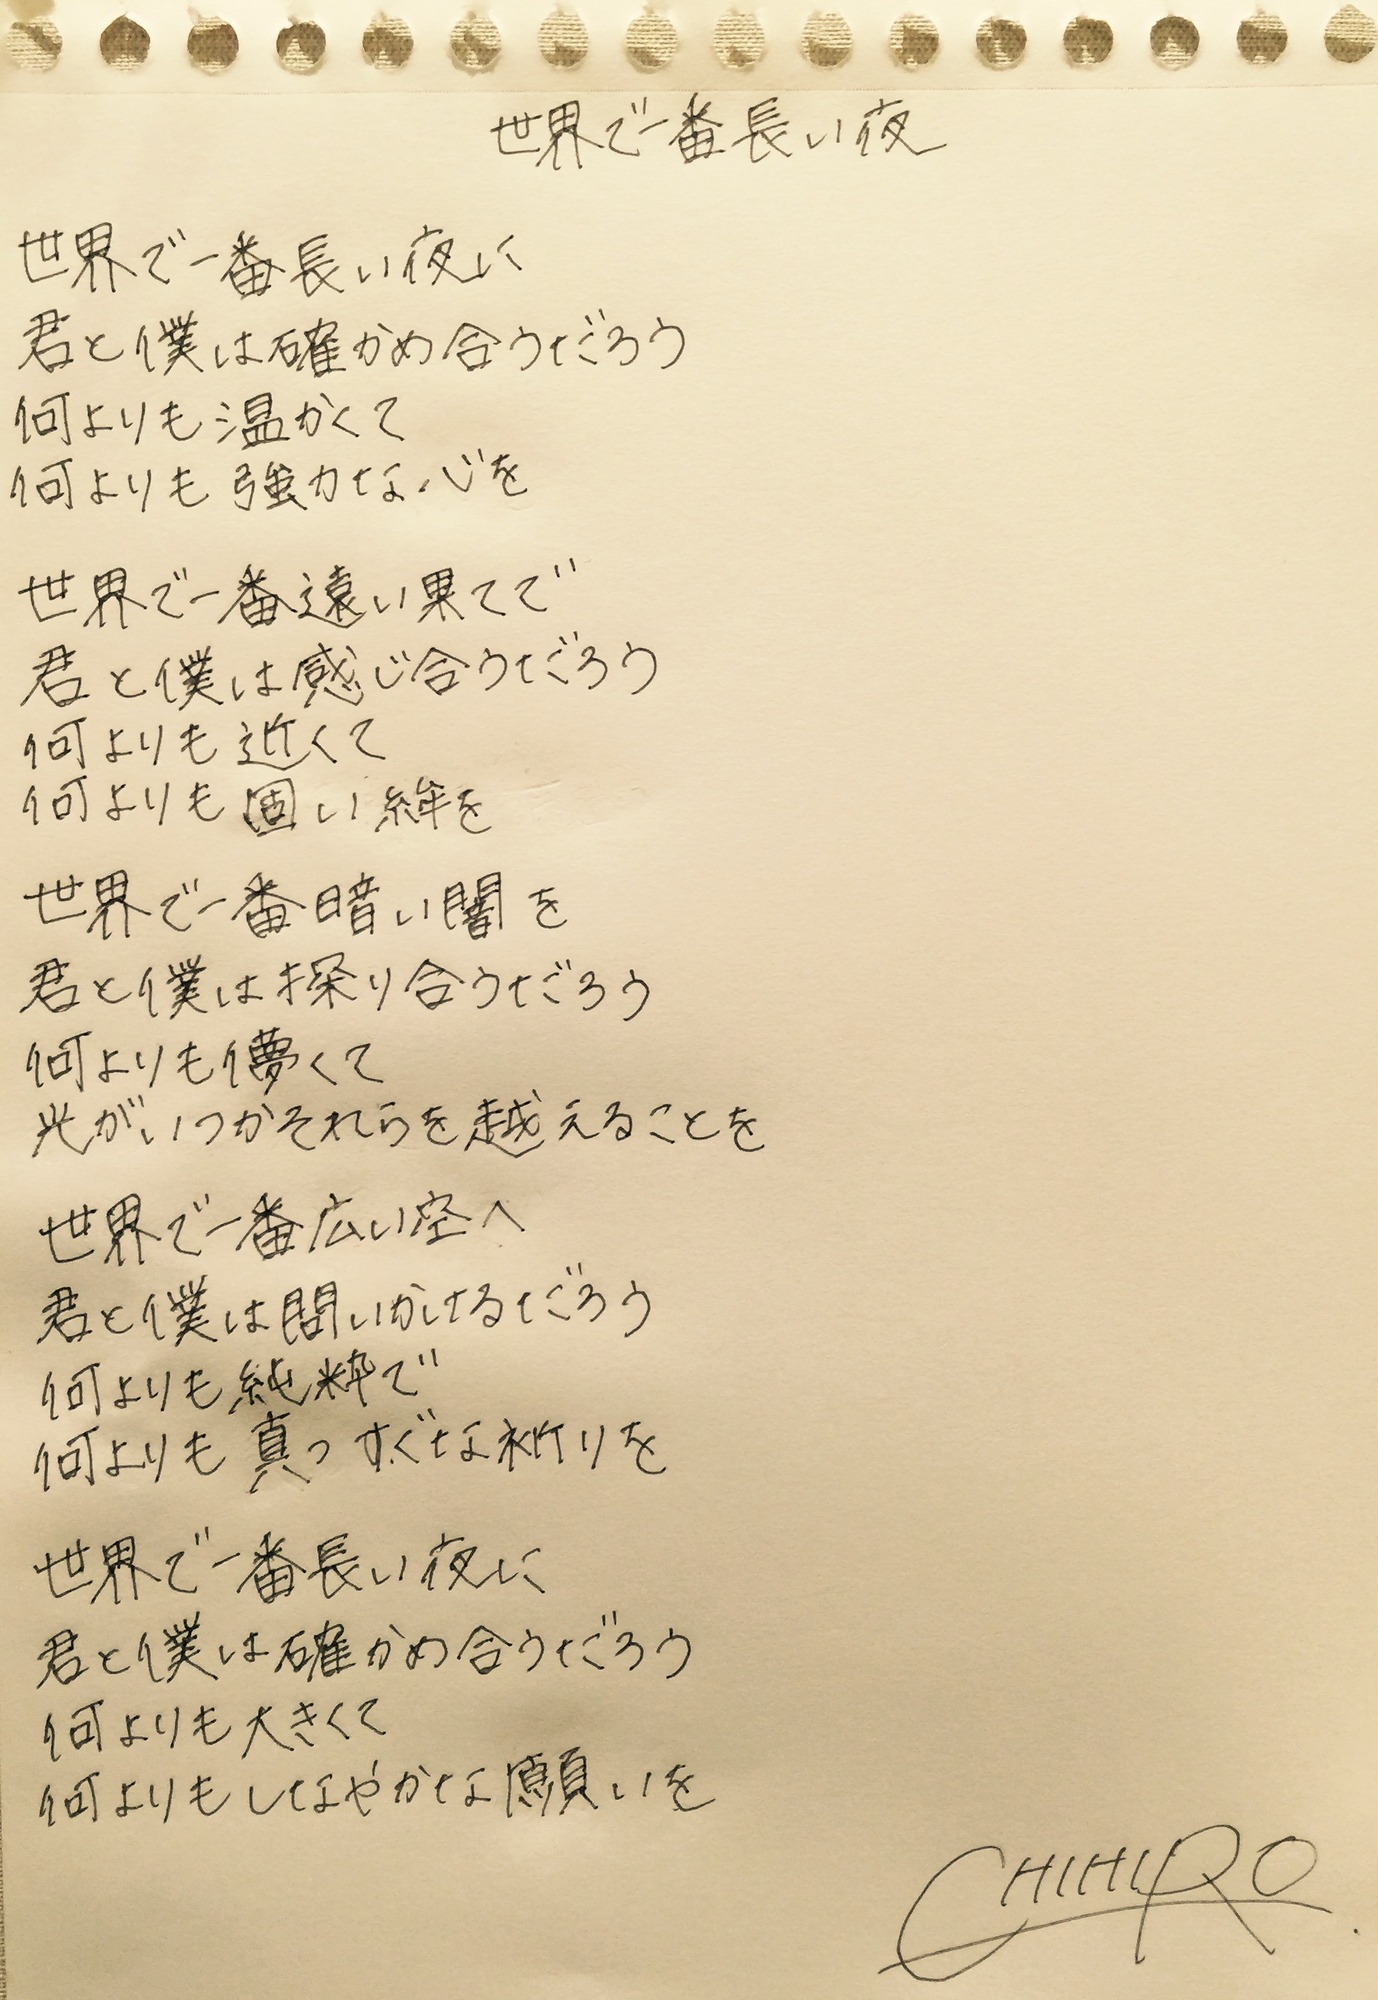 世界で一番長い夜
世界で一番長い夜に
君と僕は確かめ合うだろう
何よりも温かくて
何よりも強力な心を
世界で一番遠い果てで
君と僕は感じ合うだろう
何よりも近くて
何よりも固い絆を
世界で一番暗い闇を
君と僕は探り合うだろう
何よりも儚くて
光がいつかそれらを越えることを
世界で一番広い空へ
君と僕は問いかけるだろう
何よりも純粋で
何よりも真っすぐな祈りを
世界で一番長い夜に
君と僕は確かめ合うだろう
何よりも大きくて
何よりもしなやかな願いを
CHIHIRO.